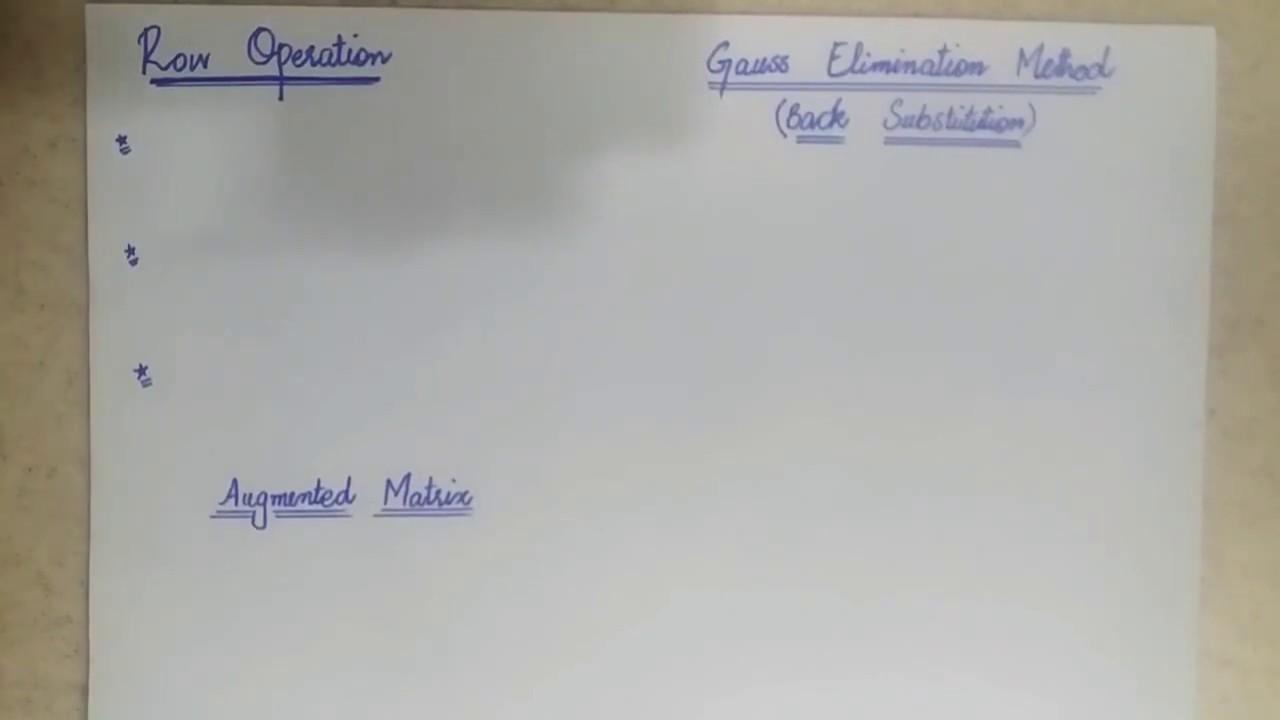 Row Operation
Gauss Elimination Method
(Back Substitution)
Augmented Matrix